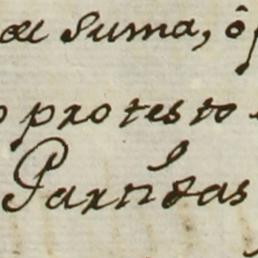 de suma, ô
protesto
Partidas